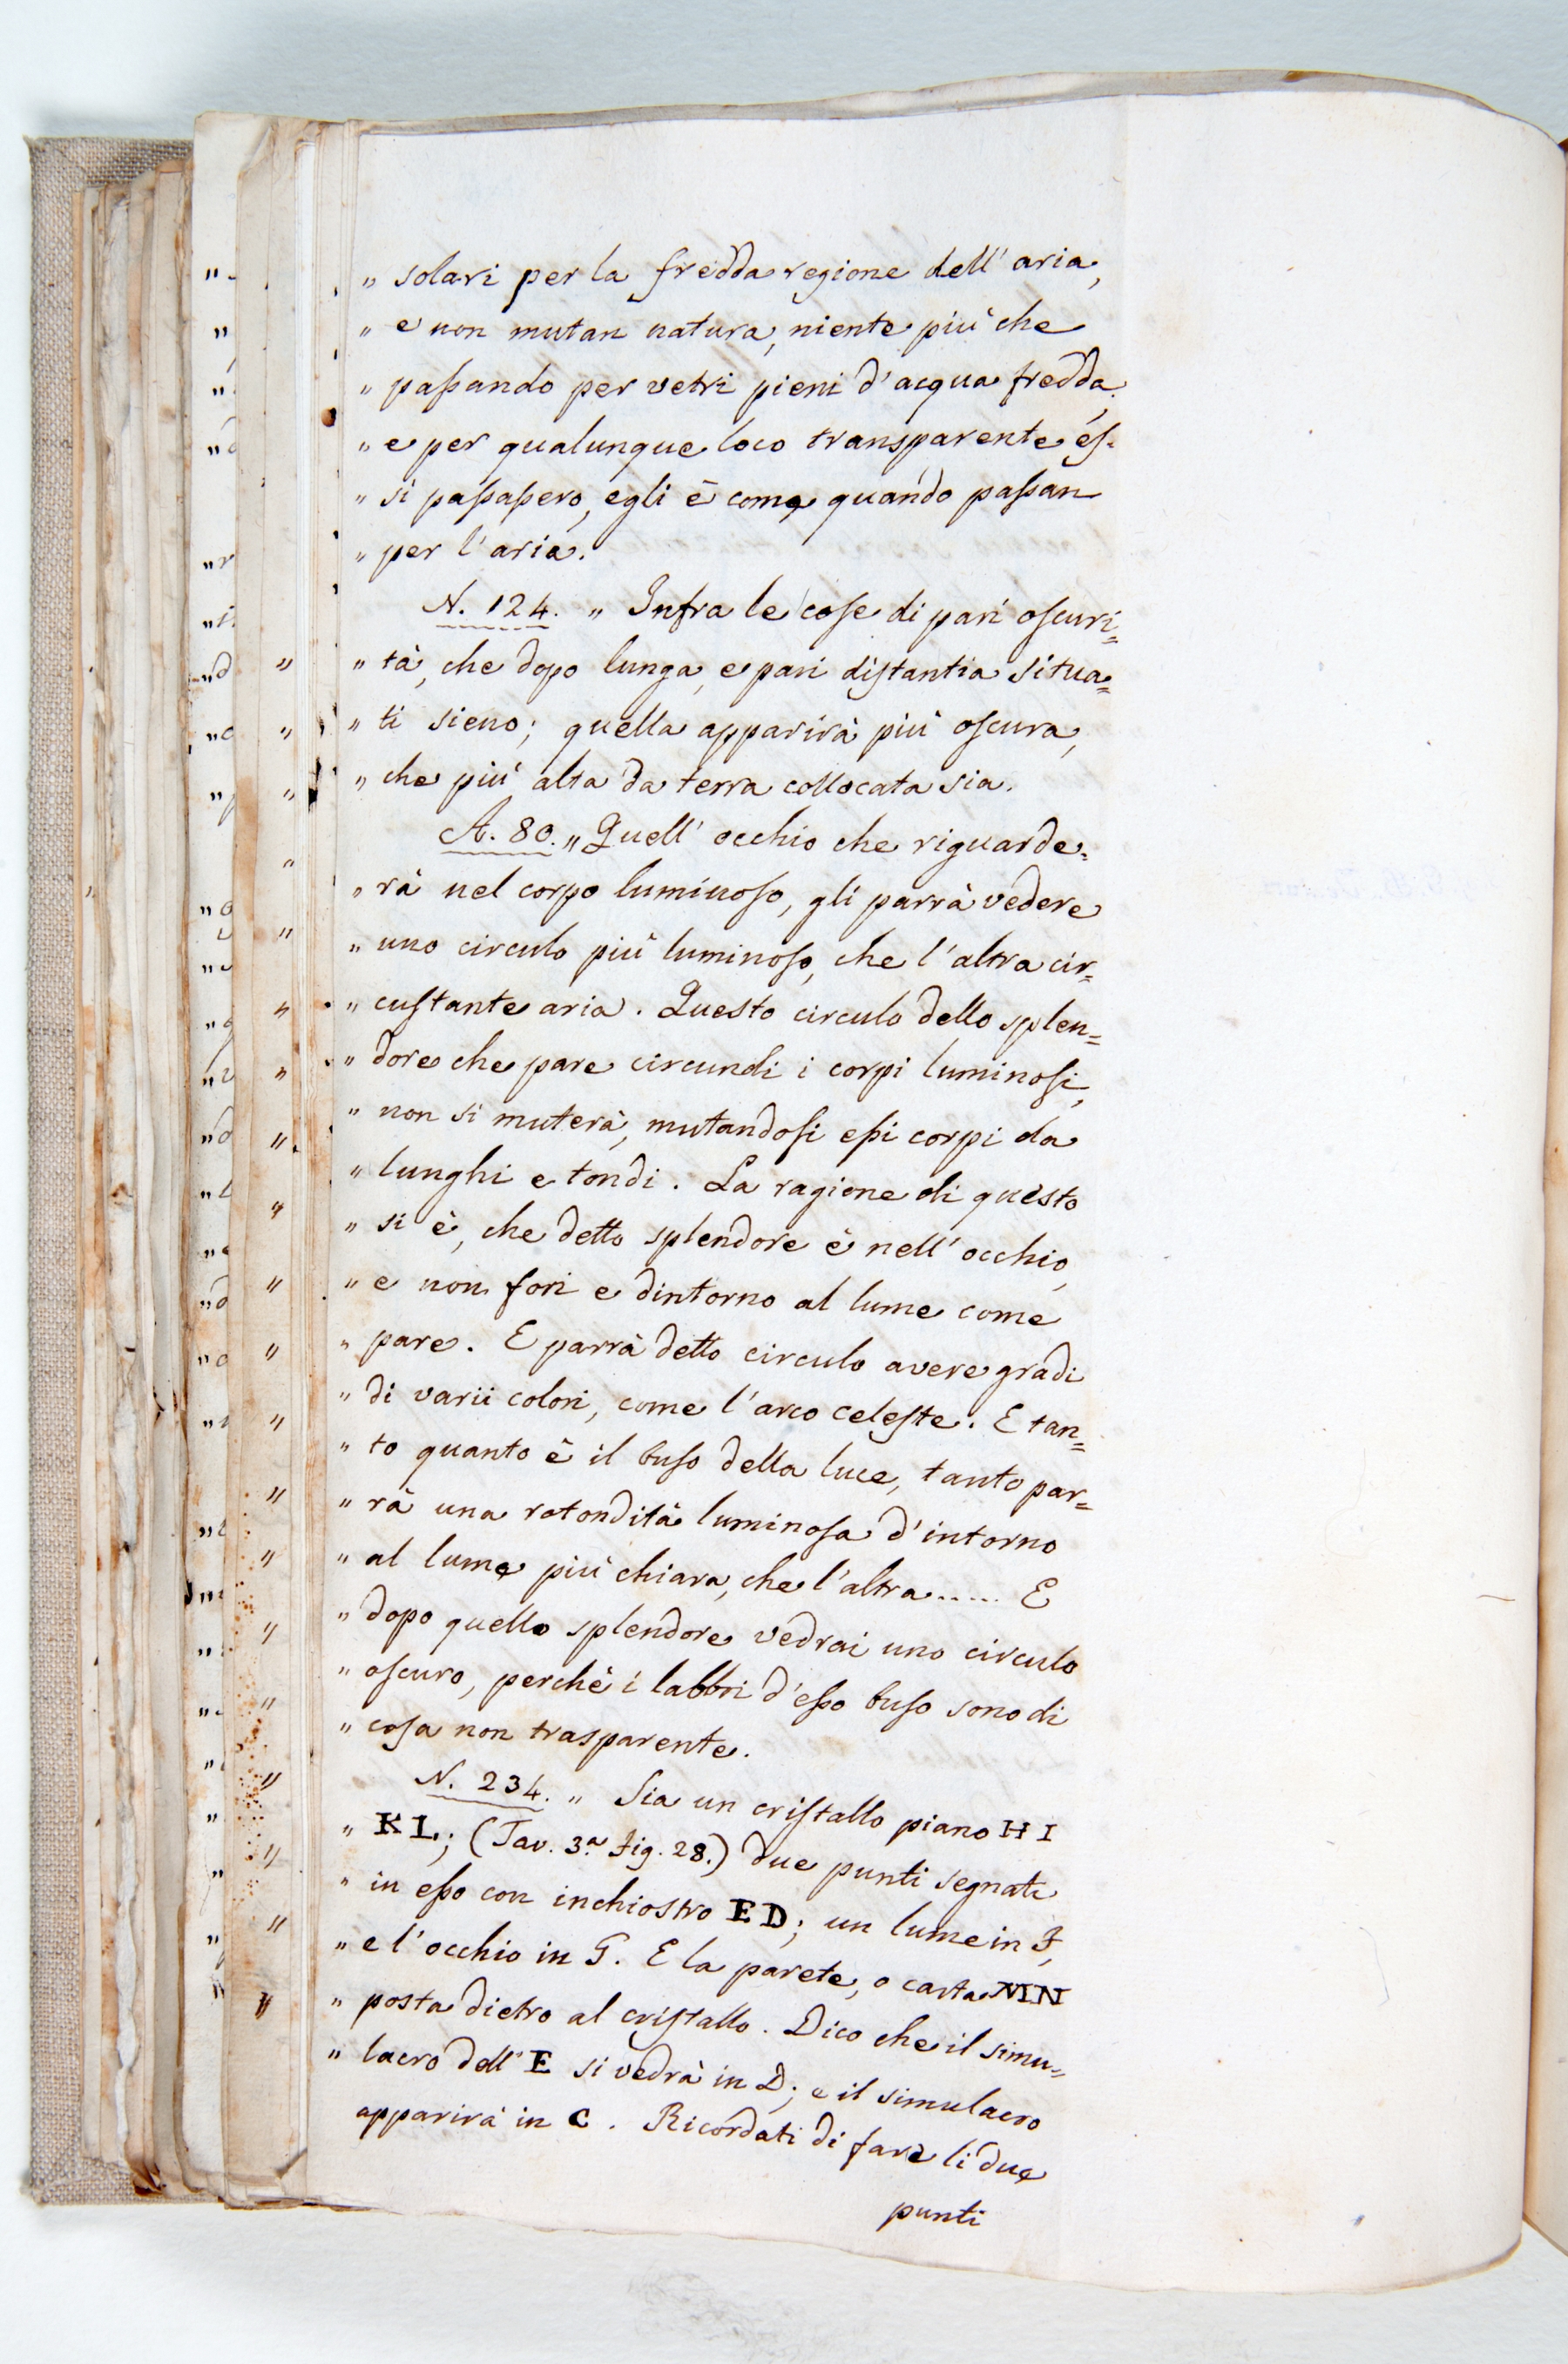 „ solari per la fredda regione dell' aria,
„ e non mutan natura, niente più che
„ paſsando per vetri pieni d'acqua fredda.
„ e per qualunque loco transparente eſ-
„ si paſsaſsero, egli è come quando paſsan
„ per l'aria.
N. 124. „ Infra le coſe di pari oſcuri=
„ tà, che dopo lunga, e pari diſtantia situa=
„ ti sieno; quella apparirà più oſcura,
„ che più alta da terra collocata sia.
A. 80. „ Quell' occhio che riguarde=
„ rà nel corpo luminoſo, gli parrà vedere
„ uno circulo più luminoſo, che l'altra cir=
„ cuſtante aria. Questo circulo dello splen=
„ dore che pare circundi i corpi luminoſi,
„ non si muterà, mutandoſi eſsi corpi da
„ lunghi e tondi. La ragione di questo
„ si è, che detto splendore è nell' occhio,
„ e non fori e dintorno al lume come
„ pare. E parrà detto circulo avere gradi
„ di varii colori, come l'arco celeſte. E tan=
„ to quanto è il buſo della luce, tanto par=
„ rà una rotondità luminoſa d'intorno
„ al lume più chiara, che l'altra..... E
„ dopo quello splendore vedrai uno circulo
„ oſcuro, perchè i labbri d'eſso buſo sono di
„ coſa non trasparente.
N. 234. „ Sia un criſtallo piano H I
„ K L; (Tav. 3.ª fig. 28.) due punti segnati
„ in eſso con inchiostro E D; un lume in F,
„ e l'occhio in G. E la parete, o carta MN
„ posta dietro al criſtallo. Dico che il simu=
„ lacro dell' E si vedrà in D; e il simulacro
apparirà in C. Ricordati di fare li due
punti